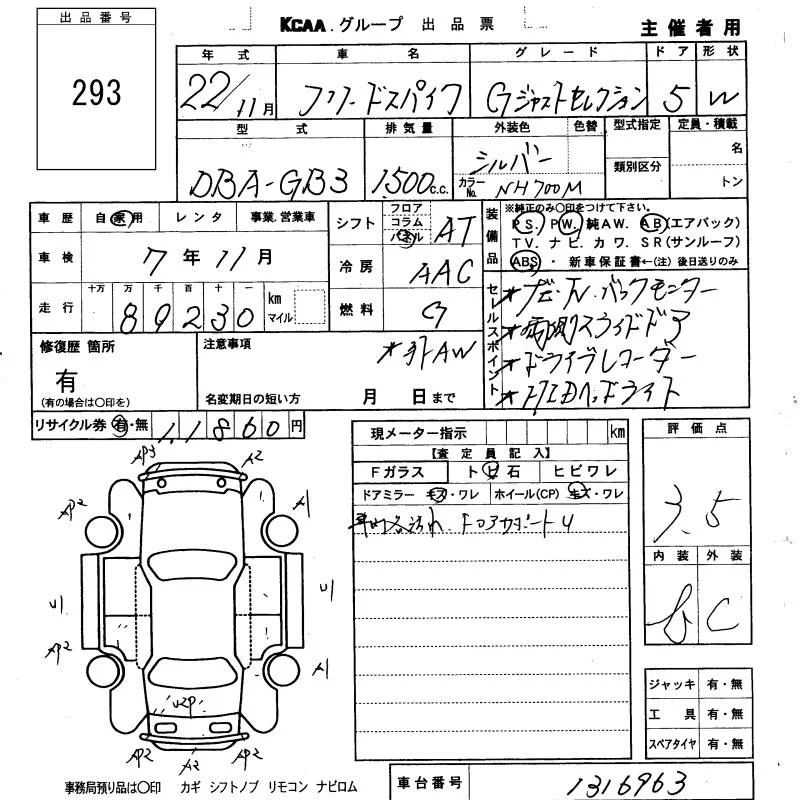 出品番号
293
KCAA.グループ 出品票
主催者用
年式 車名 グレード ドア 形状
22/11月 フリードスパイク Gジャストセレクション 5 W
型式 排気量 外装色 色替 型式指定 定員・積載
DBA-GB3 1,500c.c. シルバー カラーNo. NH700M 類別区分 名 トン
車歴 自家用 レンタ 事業.営業車
シフト フロア コラム パネル AT
車検 7年11月
冷房 AAC
走行 十万 万 千 百 十 一 km マイル
89230
燃料 G
装備品 ※純正のみ〇印をつけて下さい。
PS. PW. 純AW. AB(エアバック)
TV. ナビ. カワ. SR(サンルーフ)
ABS. 新車保証書←(注)後日送りのみ
セレルスポイント
*ナビ.TV.バックモニター
*両側スライドドア
*ドライブレコーダー
*HIDヘッドライト
修復歴 箇所
有
(有の場合は〇印を)
注意事項
*社外AW
名変期日の短い方 月 日まで
リサイクル券 有・無 11860円
現メーター指示 km
【査定員記入】
Fガラス トビ石 ヒビワレ
ドアミラー キズ・ワレ ホイール(CP) キズ・ワレ
車内各汚れ.ドアサポートU
評価点
3.5
内装 外装
b C
AP3 A2
AP2 A1
U1 U1
AP2 A1
U2P
AP2 A2 AP2
ジャッキ 有・無
工具 有・無
スペアタイヤ 有・無
事務局預り品は〇印 カギ シフトノブ リモコン ナビロム
車台番号 1316963